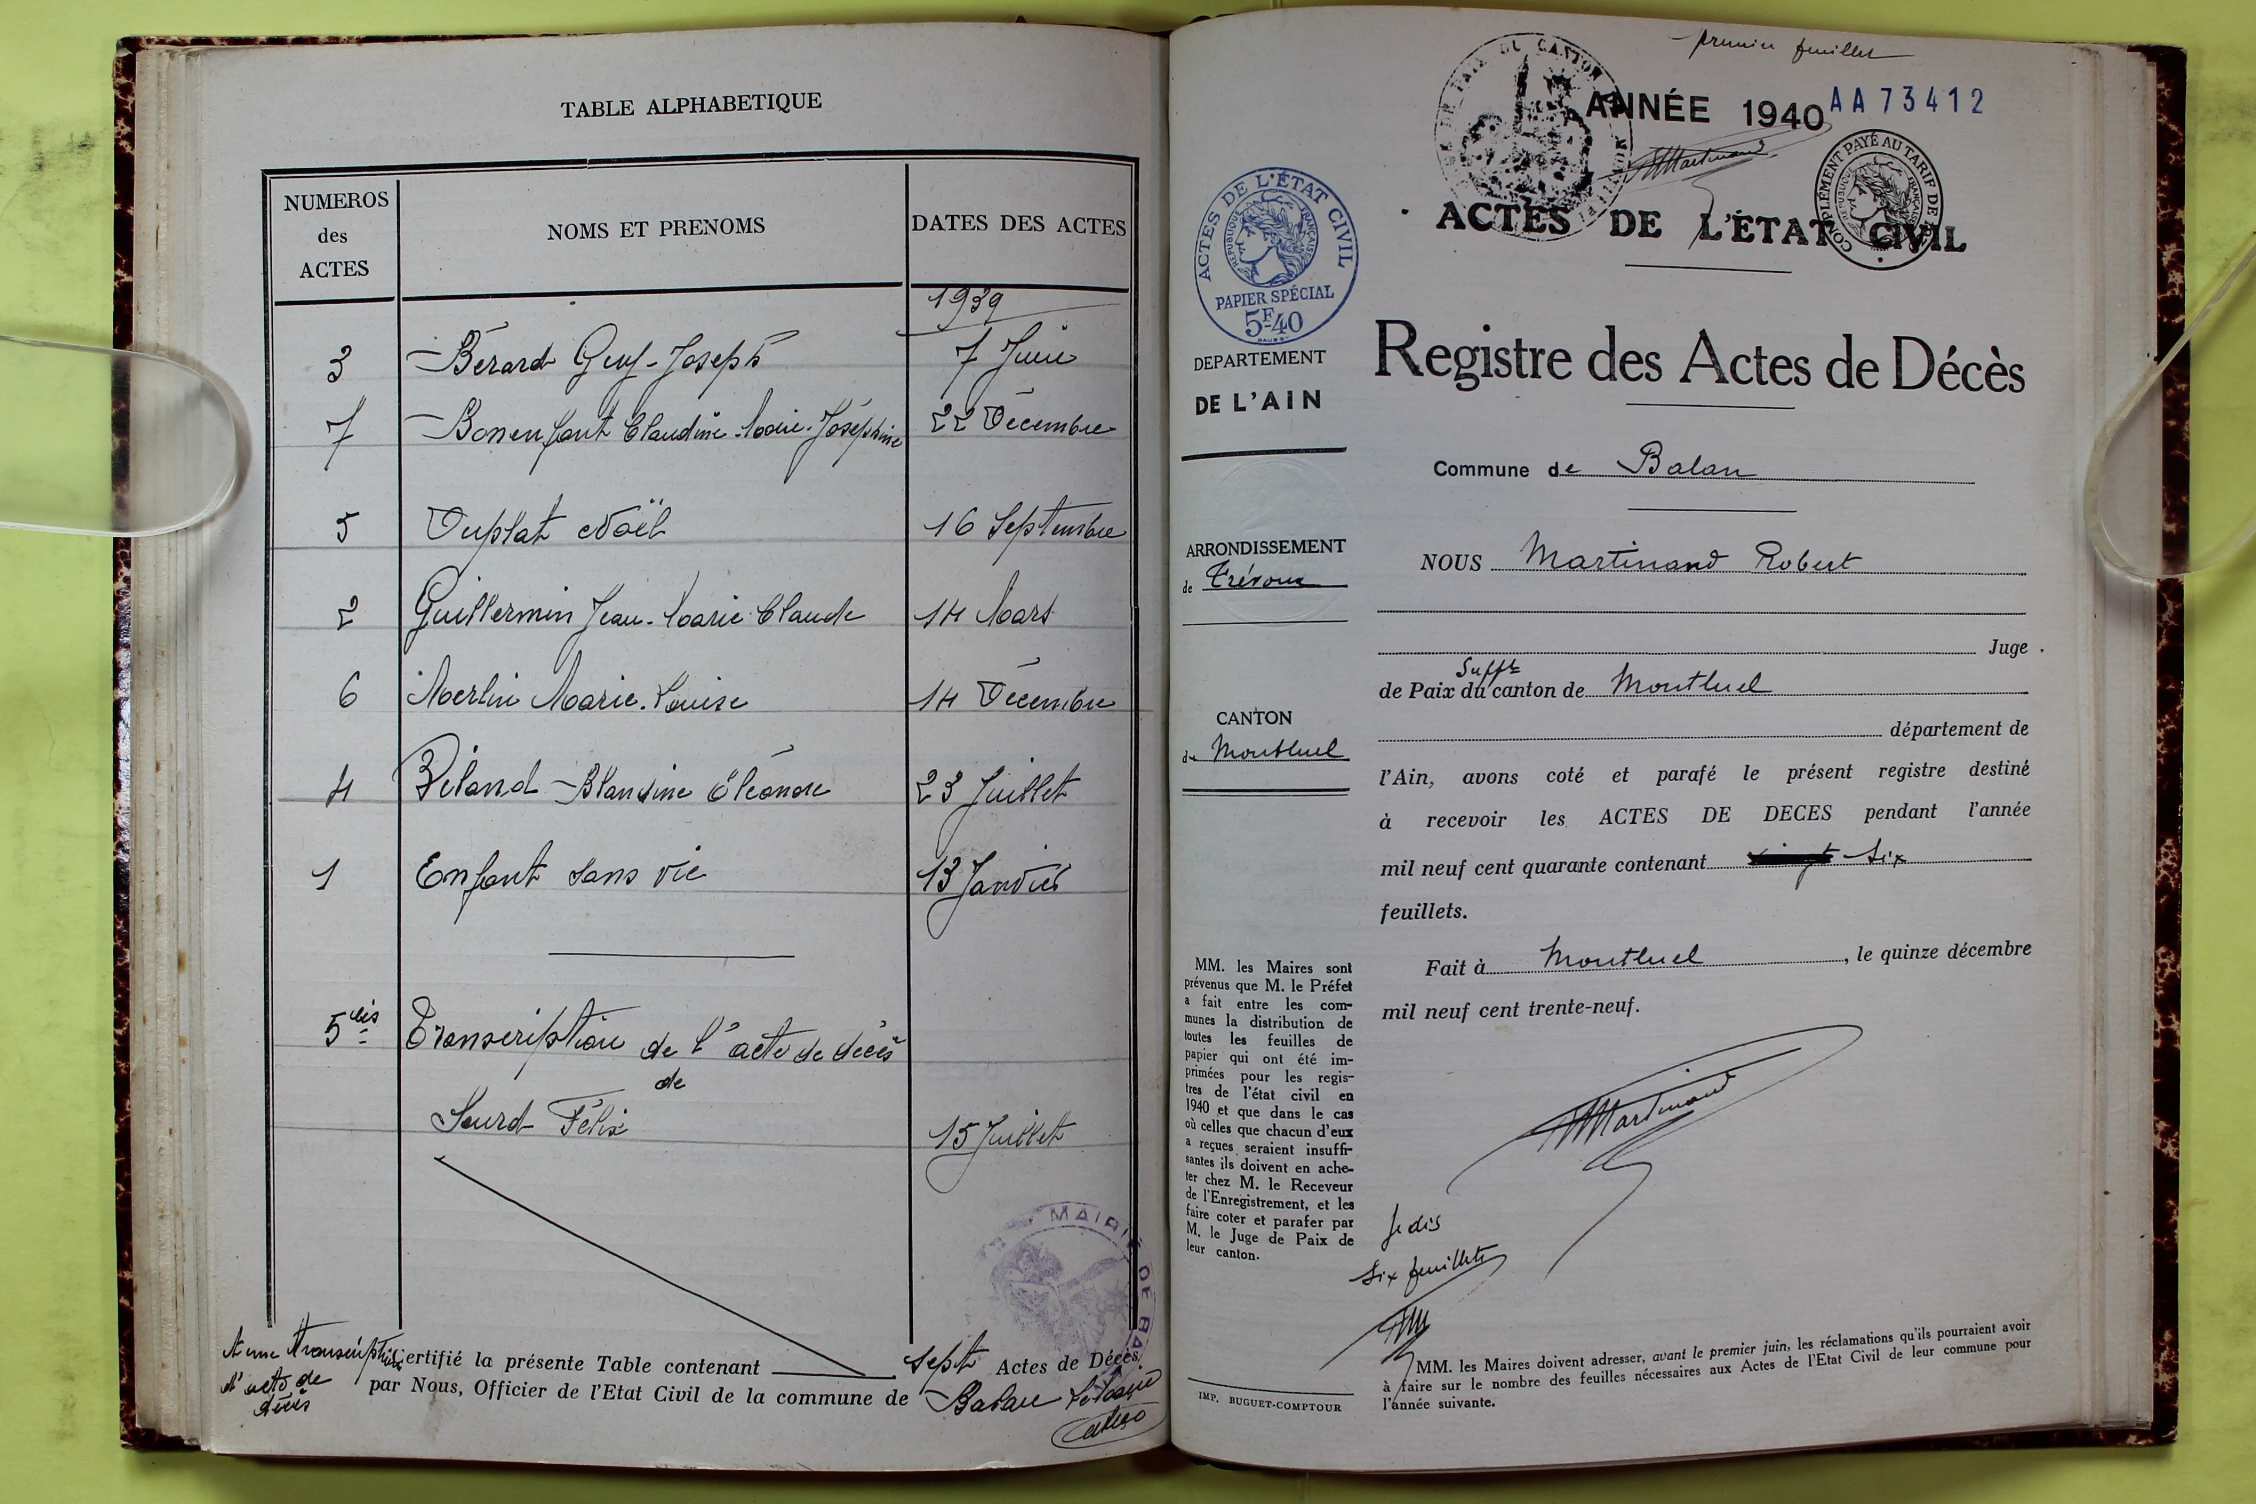 TABLE ALPHABETIQUE
NUMEROS des ACTES
NOMS ET PRENOMS
DATES DES ACTES
1939
3 Bérard Guy-Joseph 7 Juin
7 Bonenfant Claudine-Marie-Joséphine 22 Décembre
5 Duplat Noël 16 Septembre
2 Guillermin Jean-Marie Claude 14 Mars
6 Merlin Marie-Louise 14 Décembre
4 Blandine Eléonore 23 Juillet
1 Enfant sans vie 13 Janvier
5 bis Transcription de l'acte de décès
de
Sourd Félix 15 Juillet
MAIRIE DE BA
et une transcription
d'acte de
décès
Certifié la présente Table contenant sept Actes de Décès
par Nous, Officier de l'Etat Civil de la commune de Balan Le Maire
premier feuillet
ANNÉE 1940
AA73412
ACTES DE L'ÉTAT CIVIL
COMPLÉMENT PAYÉ AU TARIF DE
RÉPUBLIQUE FRANÇAISE
ACTES DE L'ÉTAT CIVIL
RÉPUBLIQUE FRANÇAISE
PAPIER SPÉCIAL
5F-40
DEPARTEMENT
DE L'AIN
ARRONDISSEMENT
de Trévoux
CANTON
de Montluel
MM. les Maires sont
prévenus que M. le Préfet
a fait entre les com-
munes la distribution de
toutes les feuilles de
papier qui ont été im-
primées pour les regis-
tres de l'état civil en
1940 et que dans le cas
où celles que chacun d'eux
a reçues seraient insuffi-
santes ils doivent en ache-
ter chez M. le Receveur
de l'Enregistrement, et les
faire coter et parafer par
M. le Juge de Paix de
leur canton.
IMP. BUGUET-COMPTOUR
Registre des Actes de Décès
Commune de Balan
NOUS Martinand Robert
Juge
Supplt
de Paix du canton de Montluel
département de
l'Ain, avons coté et parafé le présent registre destiné
à recevoir les ACTES DE DECES pendant l'année
mil neuf cent quarante contenant six
feuillets.
Fait à Montluel, le quinze décembre
mil neuf cent trente-neuf.
Martinand
Je dis
six feuillets
MM. les Maires doivent adresser, avant le premier juin, les réclamations qu'ils pourraient avoir
à faire sur le nombre des feuilles nécessaires aux Actes de l'Etat Civil de leur commune pour
l'année suivante.